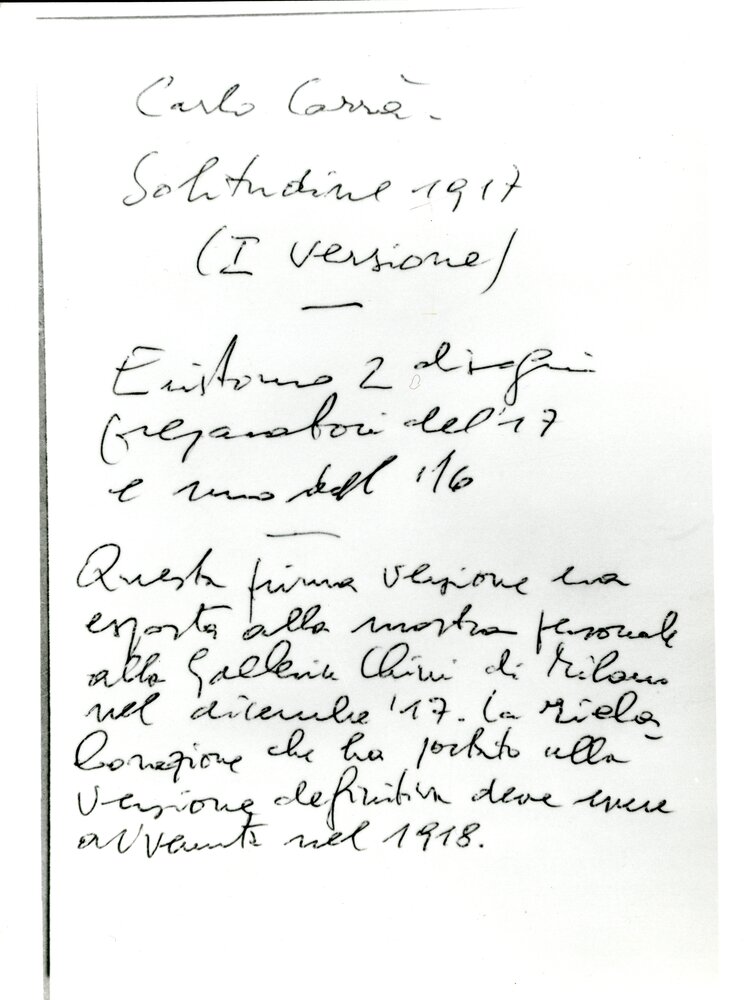 Carlo Carrà.
Solitudine 1917
(I versione)
Esistono 2 disegni
preparatori del '17
e uno del '16
Questa prima versione era
esposta alla mostra personale
alla Galleria Chini di Milano
nel dicembre '17. La riela-
borazione che ha portato alla
versione definitiva deve essere
avvenuta nel 1918.